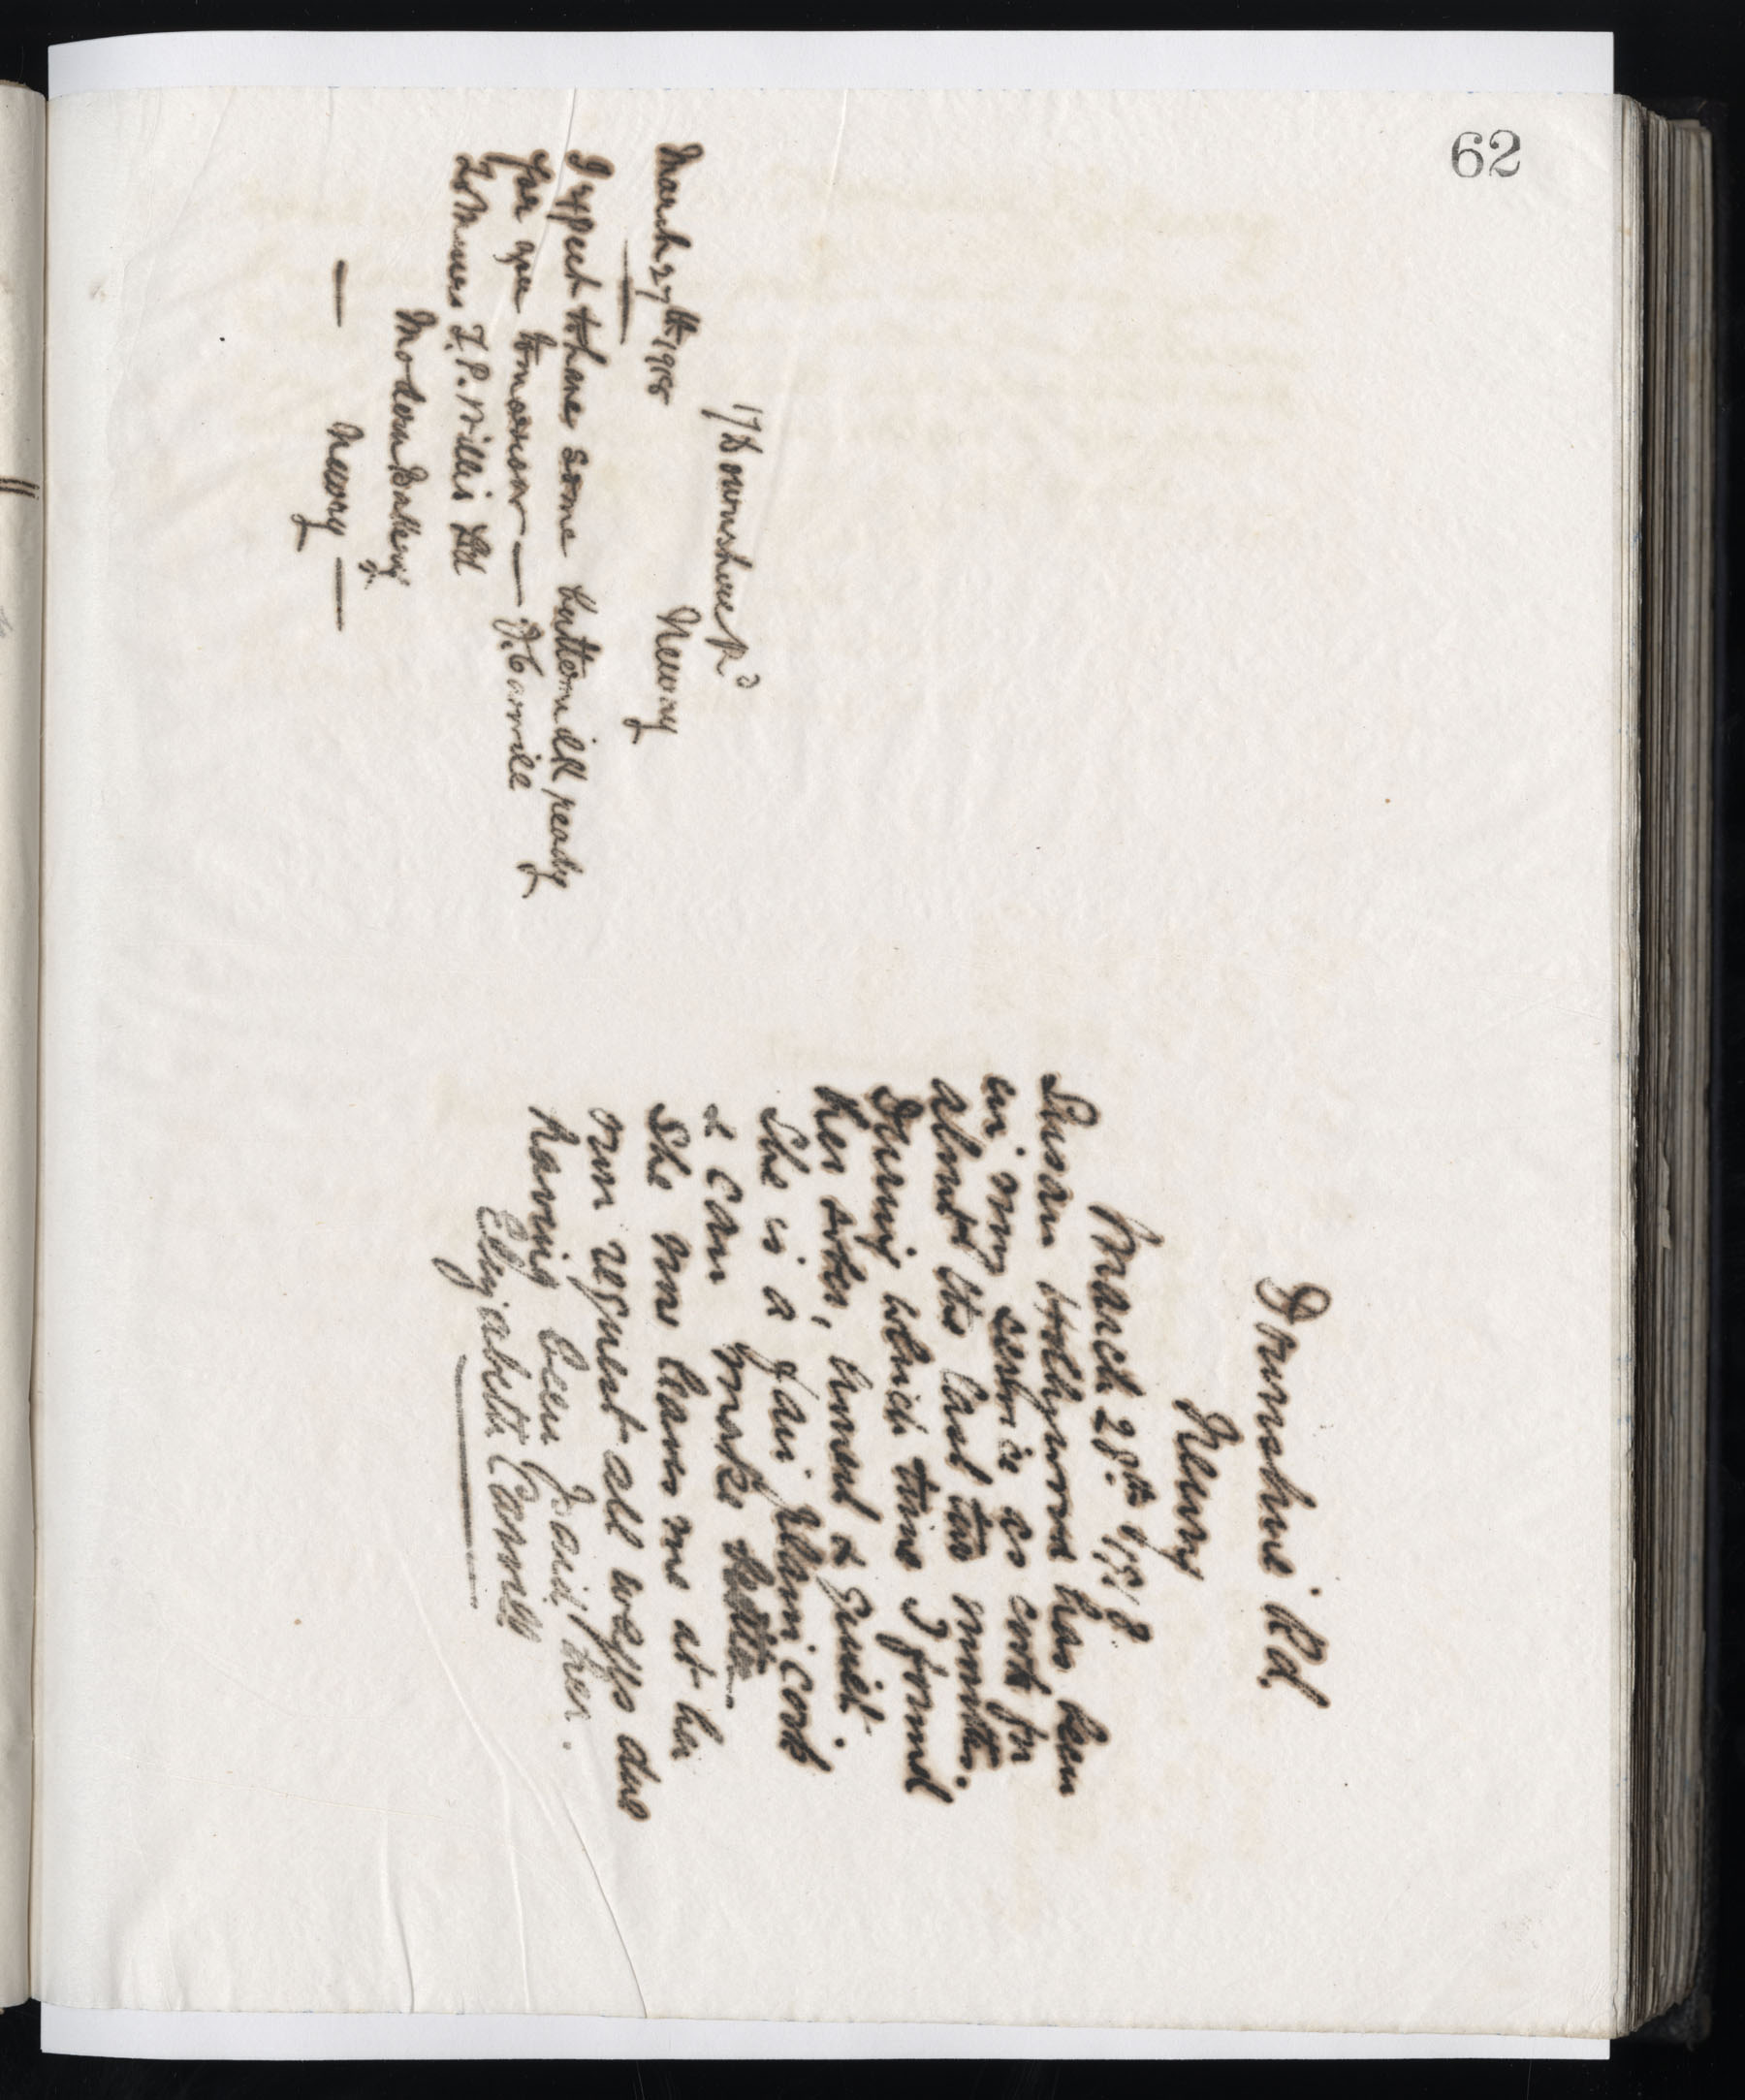 62
17 Downshire Rd
Newry
March 27th 1918
I expect to have some buttermilk ready
for you tomorrow — F. Carvill
To Messrs F. P. Willis Ltd
Modern Bakery
Newry —
Downshire Rd
Newry
March 28th 1918
Susan has been
in my service as cook for
almost the last two months.
During which time I found
her sober, honest & quiet.
She is a fair plain cook
& can make butter.
She now leaves me at her
own request all wages due
having been paid her.
Elizabeth Carvill